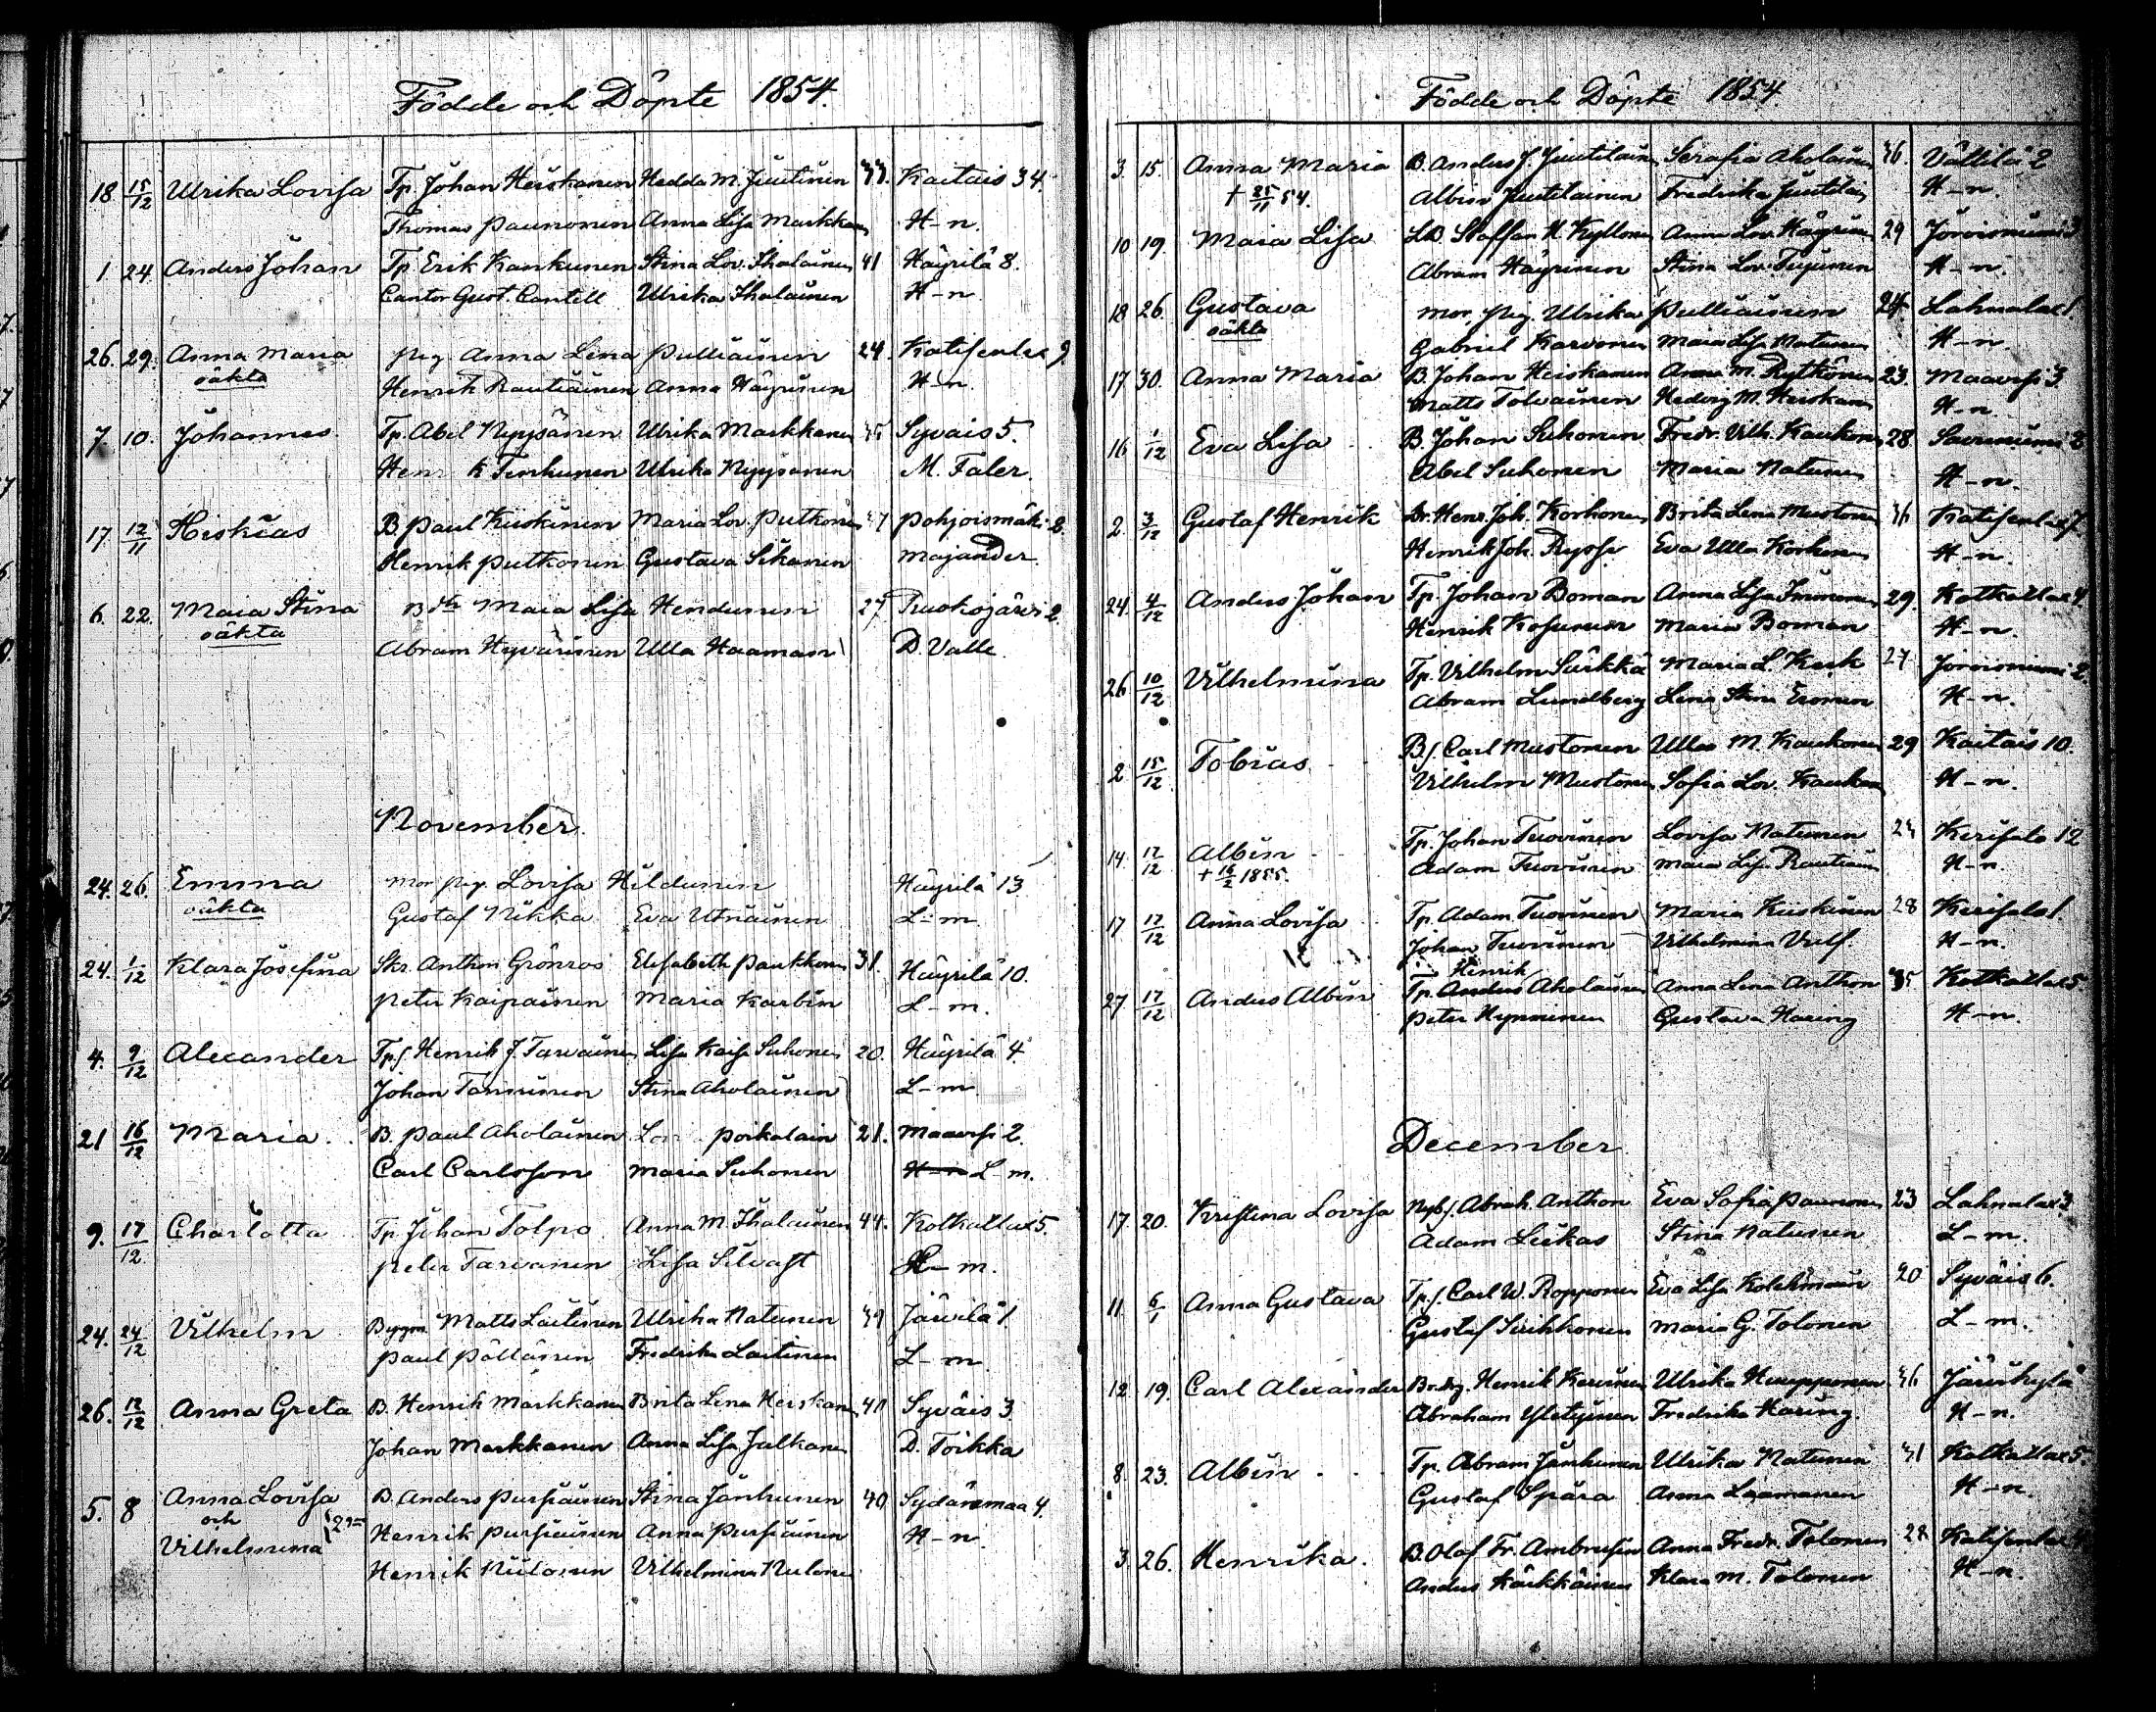 Födde och Döpte 1854.
18. 15/12 Ulrika Lovisa Tp. Johan Heiskanen Hedda M. Juutinen 33. Kaitais 34.
Thomas Paunonen Anna Lisa Markkanen H-n.
1 24. Anders Johan Tp. Erik Kankunen Stina Lov. Ihalainen 41 Häyrilä 8.
Cantor Gust. Cantell Ulrika Ihalainen H-n
26. 29. Anna Maria pig. Anna Lena Pulliainen 24. Katisenlax 9
oäkta Henrik Rautiainen Anna Häyrinen H-n.
7. 10. Johannes Tp. Abel Nyyssönen Ulrika Markkanen 35 Syväis 5.
Tenhunen Ulrika Nyyssönen M. Faler.
17. 12/11 Hiskias B. Paul Kiiskinen Maria Lov. Putkonen Pohjoismäki 2.
Henrik Putkonen Gustava Sikanen Majander.
6. 22. Maia Stina Maia Lisa Hendunen 27 Ruokojärvi 2
oäkta Abram Hyvärinen Ulla Haaman D Valle
November.
24. 26. Emma mor pig. Lovisa Hildunen Häyrilä 13
oäkta Gustaf Nikka Eva Utriainen L-m
24. 1/12 Klara Josefina Skr. Anthon Grönroos Elisabeth Paukkonen 31. Häyrilä 10.
Peter Kaipainen Maria Karbin L-m.
4. 9/12 Alexander Tp.s. Henrik J. Tarvainen Lisa Kaisa Suhonen 20. Häyrilä 4.
Johan Tanninen Stina Aholainen L-m
21 16/12 Maria. B. Paul Aholainen Poikolain 21. Maavesi 2.
Carl Carlsson Maria Suhonen H-n L-m.
9. 17/12 Charlotta Tp Johan Tolpo Anna M. Ihalainen 44. Kotkatlax 5.
Peter Tarvanen Lisa Silvast L-m.
24. 24/12 Vilhelm Bygm. Matts Laitinen Ulrika Natunen 39 Järvilä 1.
Paul Pöllänen Fredrika Laitinen L-m
26. 12/12 Anna Greta B. Henrik Markkanen Brita Lena Heiskanen 41 Syväis 3
Johan Markkanen Anna Lisa Jalkanen D. Toikka
5. 8 Anna Lovisa B. Anders Pursiainen Stina Jänhunen 40 Sydänmaa 4.
och Henrik Pursiainen Anna Pursiainen H-n
Vilhelmina Henrik Niilonen Vilhelmina Niilonen
Födde och Döpte 1854
3. 15. Anna Maria B. Anders J. Juutilainen Serafia Aholainen 36. Vättilä 2
+ 25/11 54. Albin Juutilainen Fredrika Juutilain H-n.
10 19. Maia Lisa LB. Staffan H. Kyllönen Anna Lov. Häyrinen 29 Joroisniemi 3
Abram Häyrinen Stina Lov. Tujunen H-n
18 26. Gustava mor, pig. Ulrika Pulliainen 24 Lahnalax 1.
oäkta Gabriel Karvonen Maia Lisa Natunen H-n
17. 30. Anna Maria B. Johan Heiskanen Anna M. Rytkönen 23. Maavesi 3
Matts Tolvainen Hedvig M. Heiskanen H-n
16 1/12 Eva Lisa B. Johan Suhonen Fredr. Vilh. Kaukonen 28 Savuniemi 2
Abel Suhonen Maria Natunen H-n.
2. 3/12 Gustaf Henrik Dr. Henr. Joh. Korhonen Brita Lena Mustonen 36 Katisenlax 7.
Henrik Joh. Ryssy Eva Ulla Korhonen H-n.
24. 4/12 Anders Johan Tp. Johan Boman Anna Lisa Immonen 29. Kotkatlax 4.
Henrik Kosunen Maria Boman H-n.
26 10/12 Vilhelmina Tp. Vilhelm Särkkä Maria L. Kusk 27 Joroisniemi 2.
Abram Lundberg Lena Stina Eronen H-n.
2 15/12 Tobias Bs. Carl Mustonen Ulla M. Kaukonen 29 Kaitais 10.
Vilhelm Mustonen Sofia Lov. Kaukonen H-n.
14. 17/12 Albin Tp. Johan Tuovinen Lovisa Natunen Kerisalo 12
+ 16/2 1855. Adam Tuovinen Maia Lisa Rautiain H-n.
17 17/12 Anna Lovisa Tp. Adam Tuovinen Maria Kiiskinen 28 Kerisalo 1.
Johan Tuovinen Vilhelmina Vulf. H-n.
Henrik
27. 17/12 Anders Albin Tp. Anders Aholainen Anna Lena Anthon 35 Kotkatlax 5
Peter Hynninen Gustava Haring H-n.
December
17. 20. Kristina Lovisa Nybs. Abrah. Anthon Eva Sofia Paunonen 23 Lahnalax 3
Adam Liikas Stina Natunen L-m.
11. 6/1 Anna Gustava Tp.s. Carl W. Ropponen Eva Lisa Kolehmain 20 Syväis 6.
Gustaf Siikkonen Maria G. Tolonen L-m.
12. 19. Carl Alexander Henrik Karvinen Ulrika Huupponen 36 Järvikylä
Abraham Yletyinen Fredrika Haring. H-n.
8. 23. Albin Tp. Abram Jänhunen Ulrika Natunen 31 Kotkatlax 5.
Gustaf Spåra Anna Laamanen H-n.
3. 26. Henrika. B. Olof Fr. Ambrusin Anna Fredr. Tolonen 28 Katisenlax 4
Anders Kärkkäinen Klara M. Tolonen H-n.